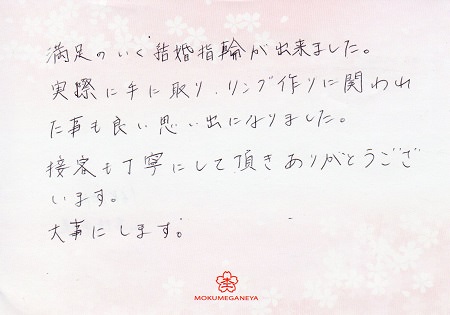 満足のいく結婚指輪が出来ました。
実際に手に取り、リング作りに関われ
た事も良い思い出になりました。
接客も丁寧にして頂きありがとうござ
います。
大事にします。
MOKUMEGANEYA